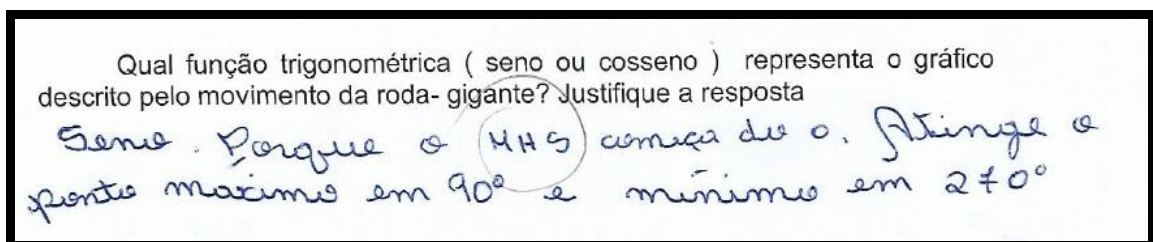 Qual função trigonométrica ( seno ou cosseno ) representa o gráfico
descrito pelo movimento da roda- gigante? Justifique a resposta
Seno. Porque o MHS começa do 0. Atinge o
ponto maximo em 90º e mínimo em 270º